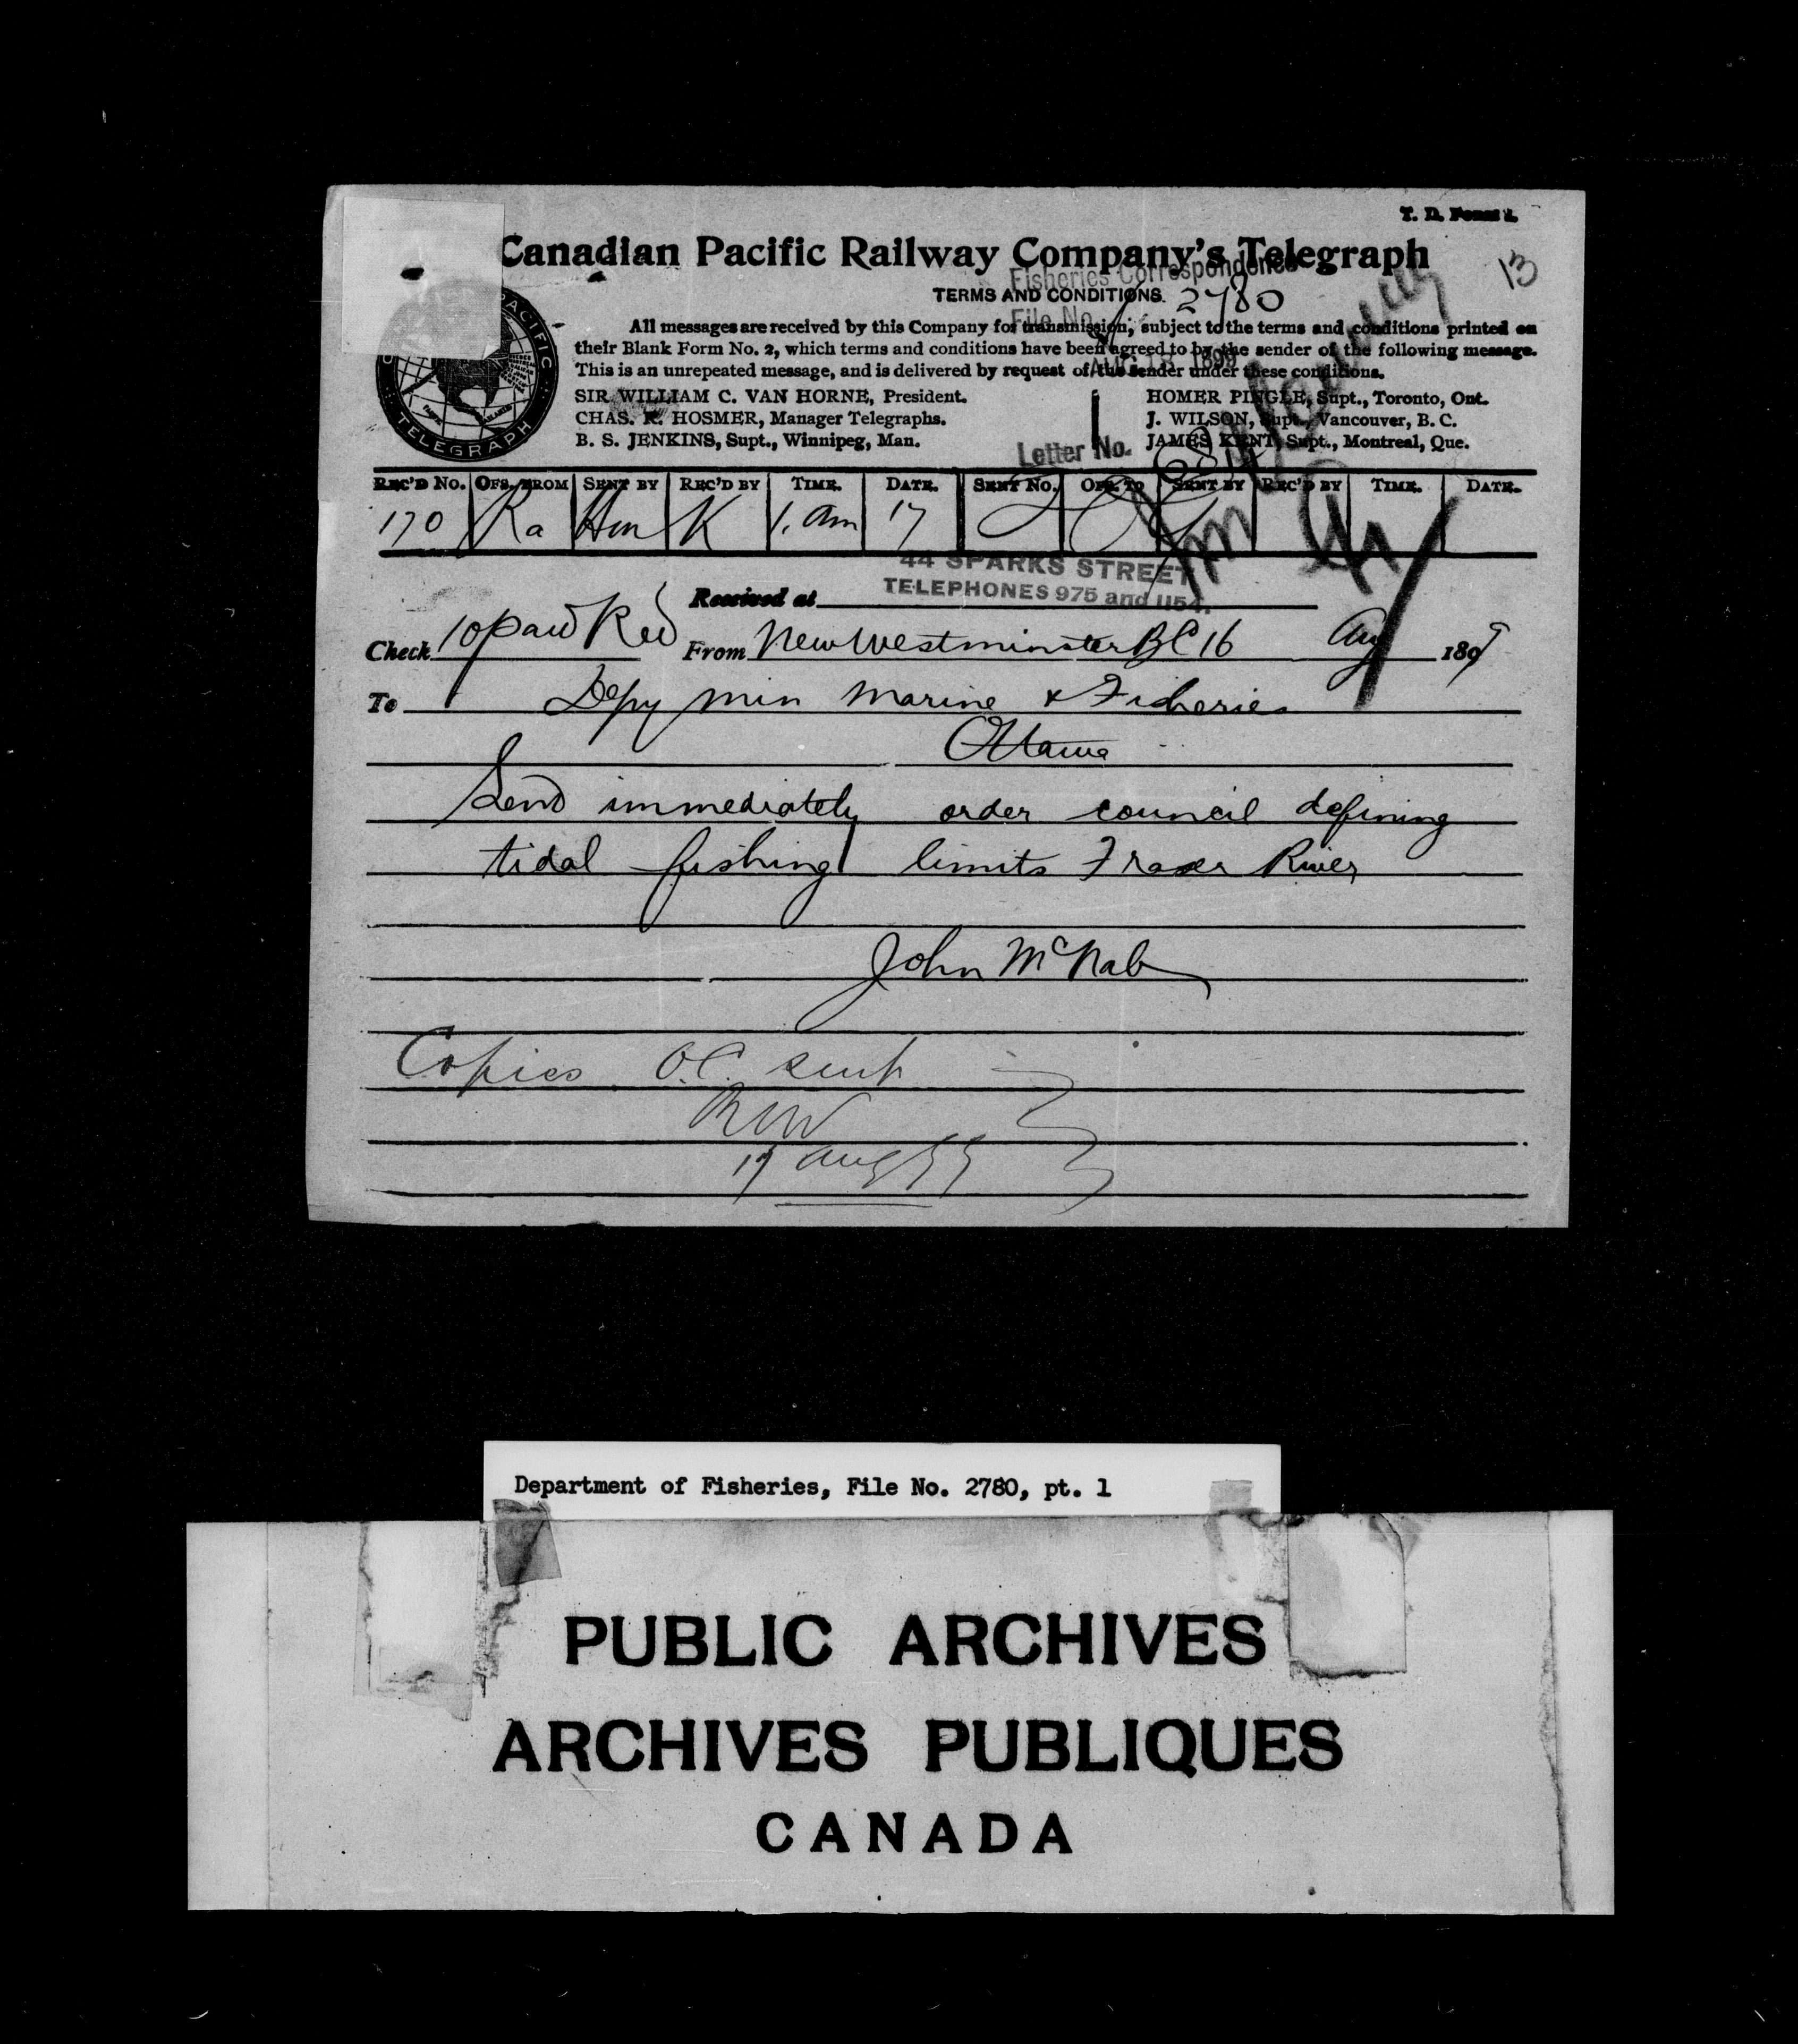 T. D. Form 1.
13
Canadian Pacific Railway Company's Telegraph
Fisheries Correspondence
TERMS AND CONDITIONS.
File No. 2780
All messages are received by this Company for transmission, subject to the terms and conditions printed on
their Blank Form No. 2, which terms and conditions have been agreed to by the sender of the following message.
This is an unrepeated message, and is delivered by request of the sender under these conditions.
AUG 18 1899
SIR WILLIAM C. VAN HORNE, President.
CHAS. R. HOSMER, Manager Telegraphs.
B. S. JENKINS, Supt., Winnipeg, Man.
HOMER PINGLE, Supt., Toronto, Ont.
J. WILSON, Supt., Vancouver, B. C.
JAMES KENT, Supt., Montreal, Que.
PACIFIC
TELEGRAPH
Letter No.
REC'D No. OFS. FROM SENT BY REC'D BY TIME. DATE. SENT No. OFS. TO SENT BY REC'D BY TIME. DATE.
170 Ra Hm K 1. am 17
44 SPARKS STREET
TELEPHONES 975 and 1154.
Received at
Check 10 paid Rec From New Westminster BC 16 Aug 1899
To Depy min marine & Fisheries
Ottawa
Send immediately order council defining
tidal fishing limits Fraser River
John McNab
Copies O.C. sent
RW
17 Aug 99
Department of Fisheries, File No. 2780, pt. 1
PUBLIC ARCHIVES
ARCHIVES PUBLIQUES
CANADA